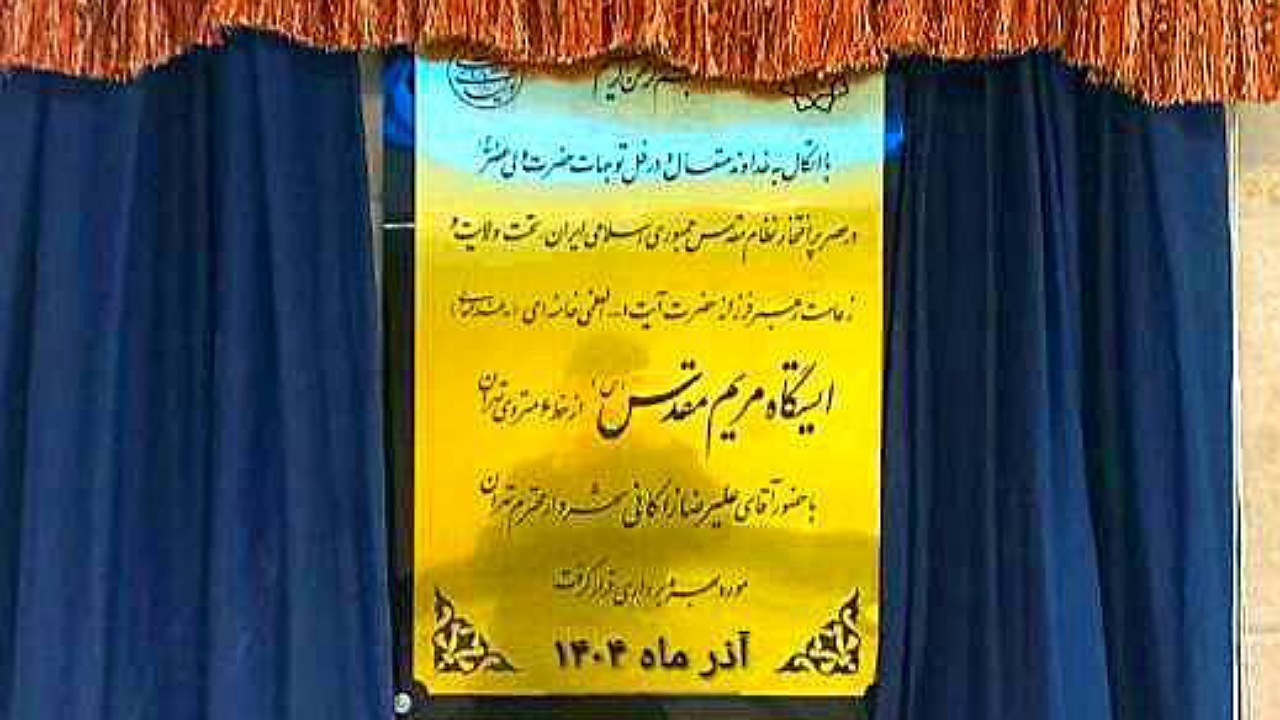 بسم الله الرحمن الرحیم
با اتکال به خداوند متعال و در ظل توجهات حضرت ولی عصر
در عصر پر افتخار نظام مقدس جمهوری اسلامی ایران تحت ولایت و
زعامت رهبر فرزانه حضرت آیت ا... العظمی خامنه ای
ایستگاه مریم مقدس (س) از خط ۶ متروی تهران
با حضور آقای علیرضا زاکانی شهردار محترم تهران
مورد بهره برداری قرار گرفت
آذر ماه ۱۴۰۴